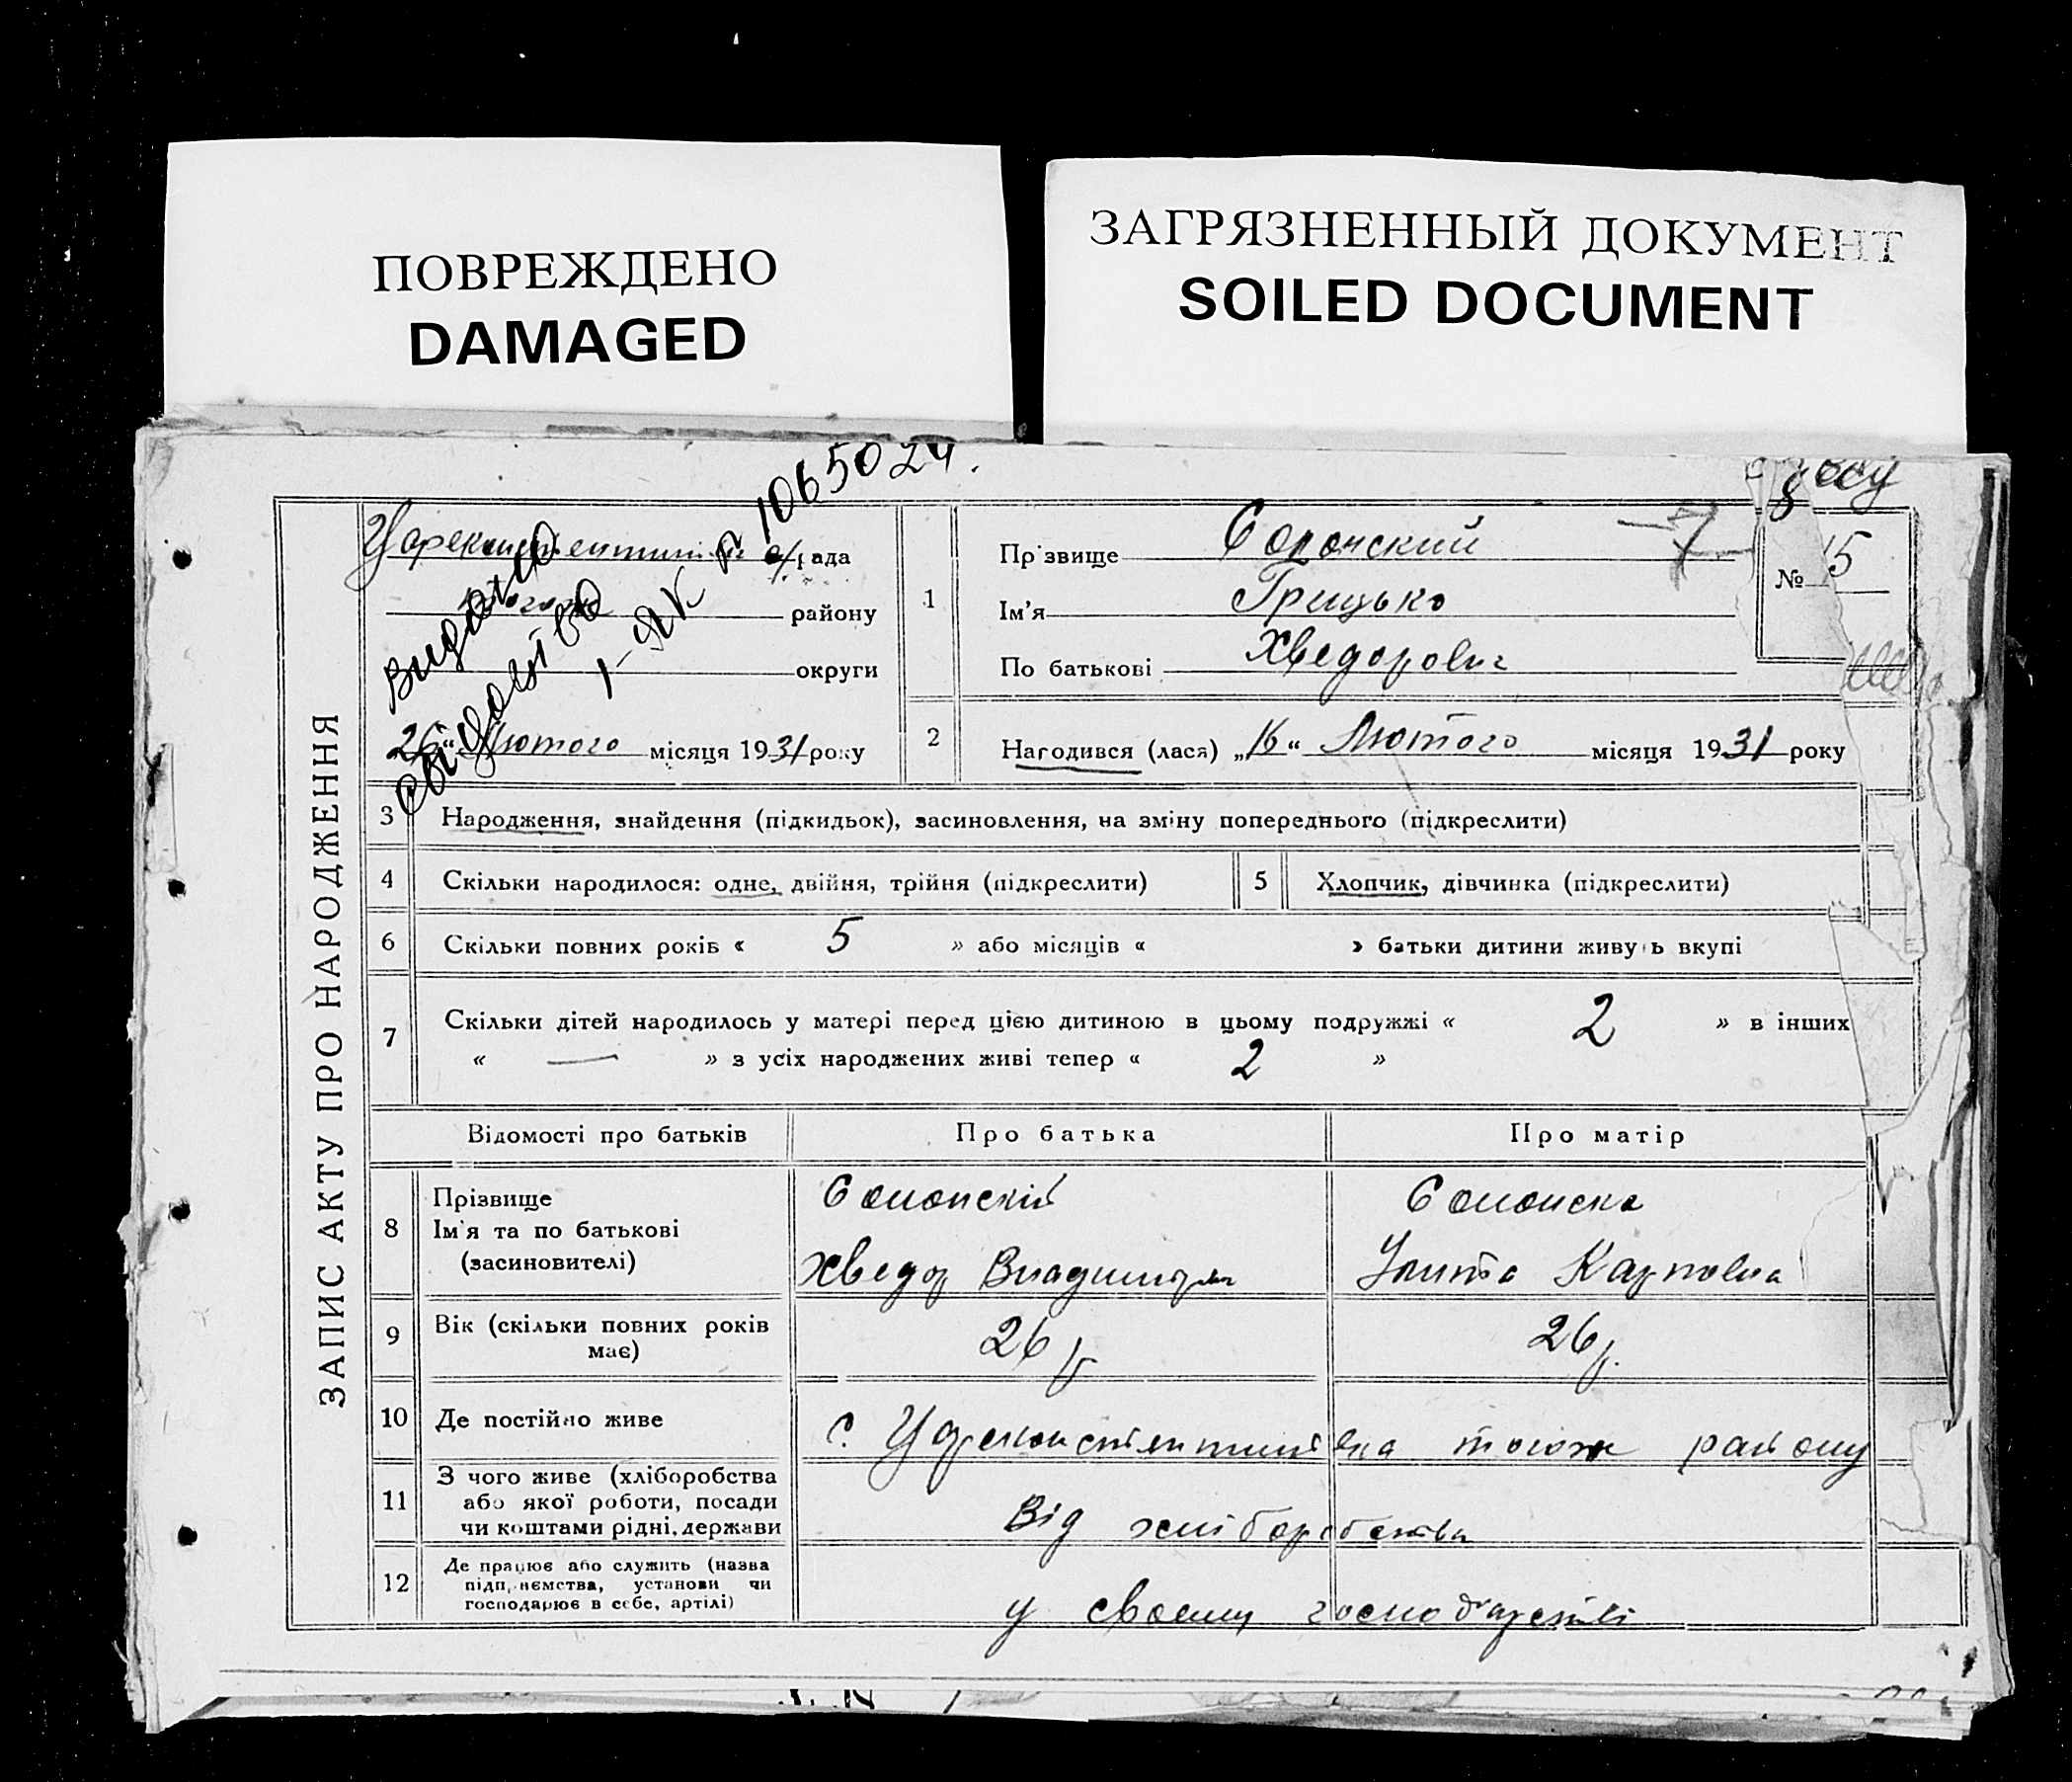 ПОВРЕЖДЕНО
DAMAGED
ЗАГРЯЗНЕННЫЙ ДОКУМЕНТ
SOILED DOCUMENT
ЗАПИС АКТУ ПРО НАРОДЖЕННЯ
Видано
свідоцтво
1-ЯК № 1065024.
с/рада
району
округи
"26" Лютого місяця 1931 року
1
Прізвище
Ім'я Грицько
По батькові Хведорович
№ 15
2
Народився (лася) „16“ Лютого місяця 1931 року
3 Народження, знайдення (підкидьок), засиновлення, на зміну попереднього (підкреслити)
4 Скільки народилося: одне, двійня, трійня (підкреслити)
5 Хлопчик, дівчинка (підкреслити)
6 Скільки повних років « 5 » або місяців « » батьки дитини живуть вкупі
7 Скільки дітей народилось у матері перед цією дитиною в цьому подружжі « 2 » в інших
« — » з усіх народжених живі тепер « 2 »
Відомості про батьків Про батька Про матір
8 Прізвище
Ім'я та по батькові
(засиновителі)
Хведор
Улита Карповна
9 Вік (скільки повних років
має)
26 р. 26 р.
10 Де постійно живе с. Царекостянтинівка того ж району
11 З чого живе (хліборобства
або якої роботи, посади
чи коштами рідні, держави
Від хліборобства
12 Де працює або служить (назва
підприємства, установи чи
господарює в себе, артілі)
у своему господарстві